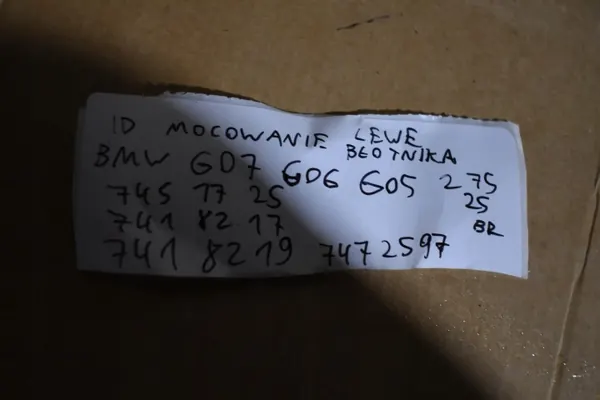 ID MOCOWANIE LEWE
BŁOTNIKA
BMW G07 G06 G05 275
745 17 25 25
741 82 17 BR
741 82 19 7472597